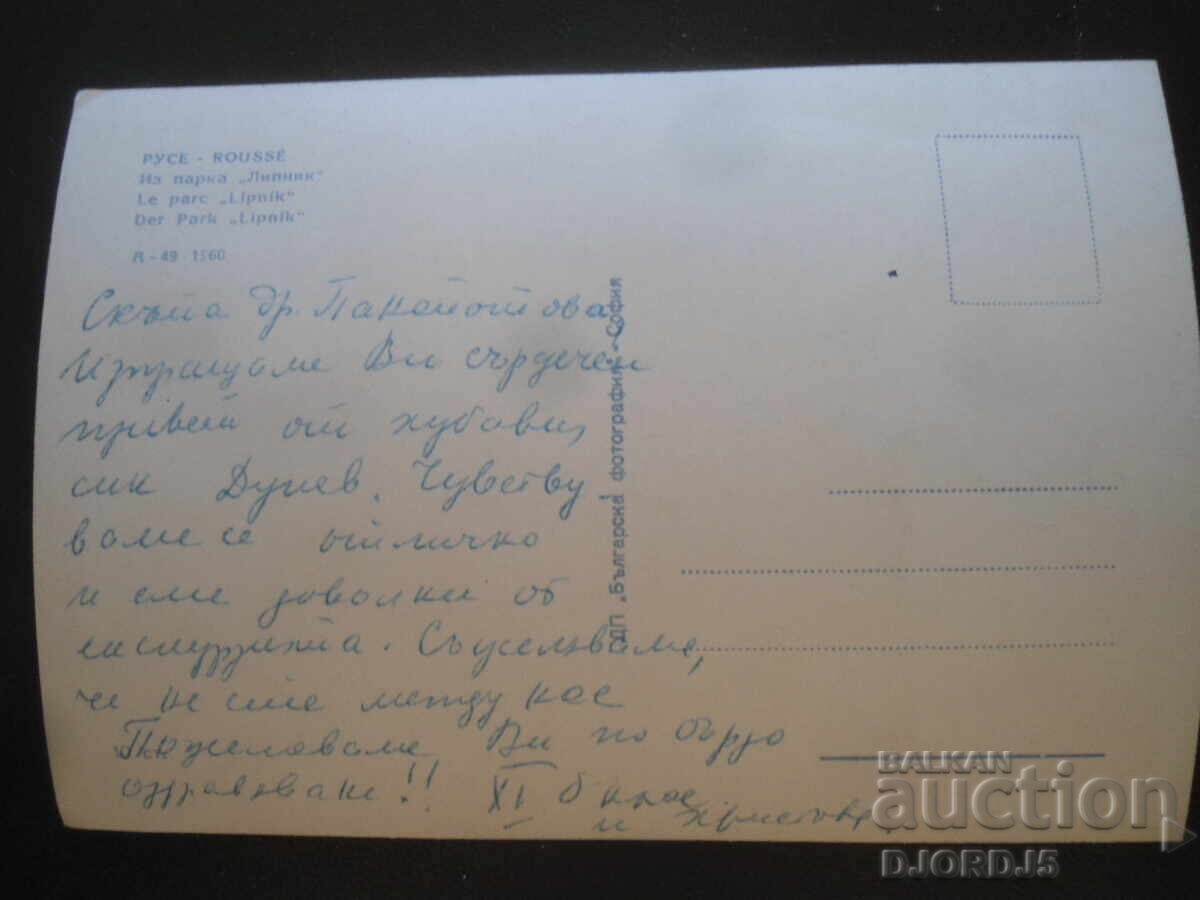 РУСЕ - ROUSSE
Из парка „Липник"
Le parc „Lipnik"
Der Park „Lipnik"
А - 49 1960
Скъпа др. Панайотова,
Изпращаме Ви сърдечен
привет от хубавия,
сик Дунав. Чувству
ваме се отлично
и сме доволни от
екскурзията. Съжеляваме,
че не сте между нас
Пожелаваме Ви по бързо
оздравяване!! XI б клас
и Христова
ДП „Българска фотография" - София
BALKAN
auction
DJORDJ5